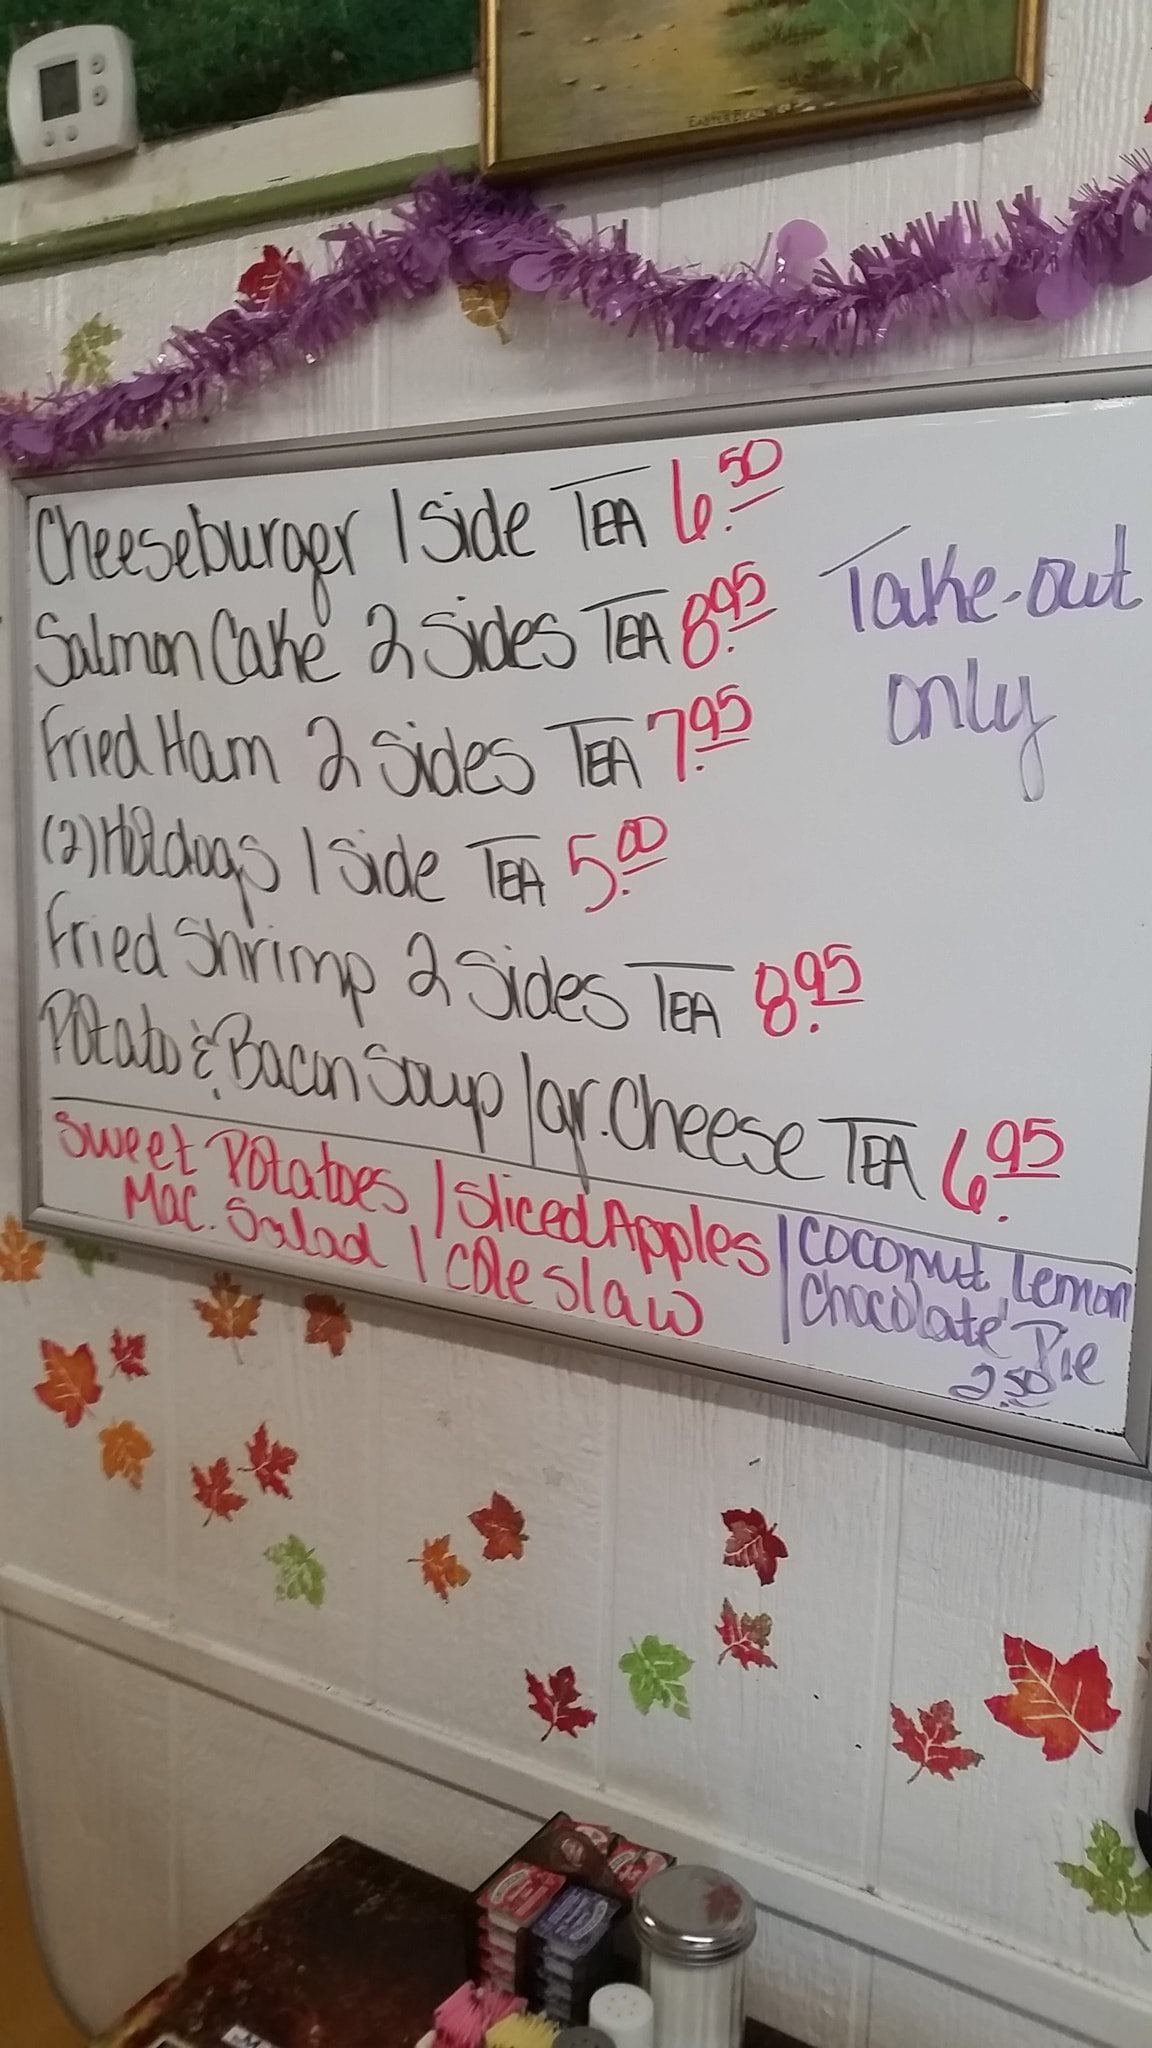 Cheeseburger 1 Side TEA 6.50
Salmon Cake 2 Sides TEA 8.95
Take-out
only
Fried Ham 2 Sides TEA 7.95
(2) Hotdogs 1 Side TEA 5.00
Fried Shrimp 2 Sides TEA 8.95
Potato & Bacon Soup / gr. Cheese TEA 6.95
Sweet Potatoes / Sliced Apples
Mac. Salad / Cole slaw
Coconut, Lemon
Chocolate Pie
2.50